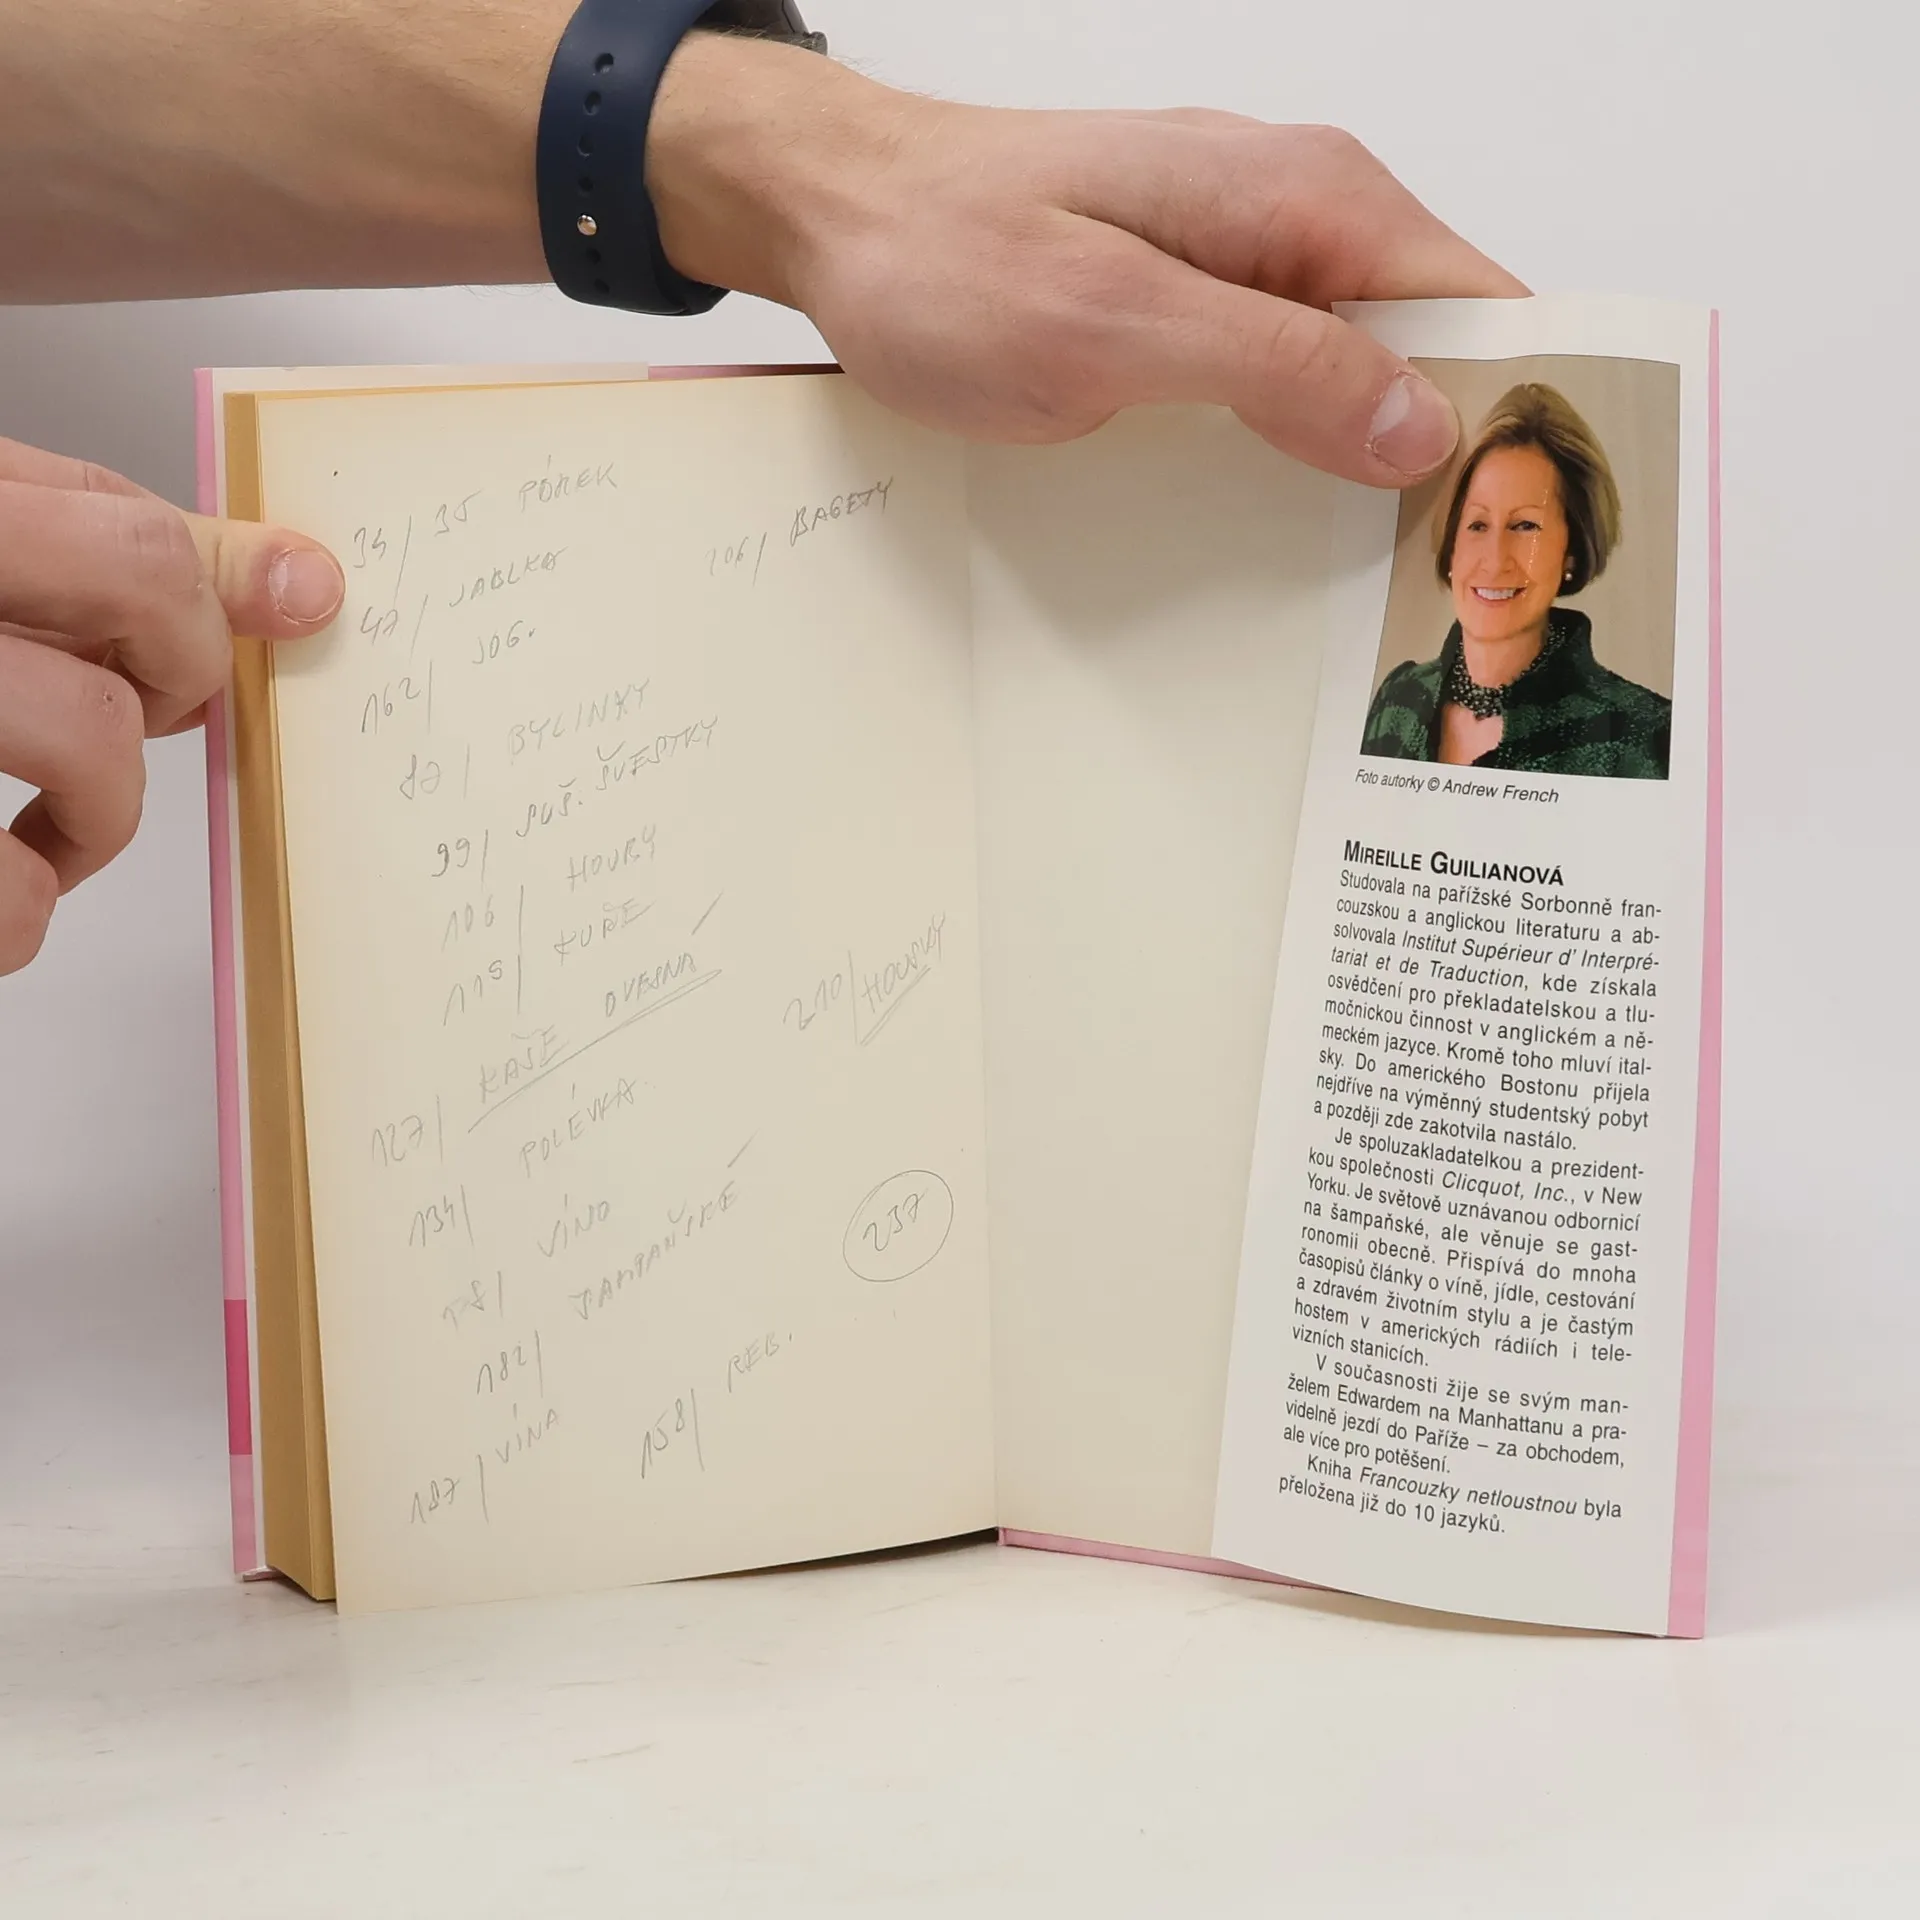 34/35 PÓREK
47/ JABLKA
162/ JOG.
/ BYLINKY
99/ SUŠ. ŠVESTKY
106/ HOUBY
115/ KUŘE
127/ KAŠE OVESNÁ
134/ POLÉVKA
VÍNO
182/ ŠAMPAŇSKÉ
187/ VÍNA
158/ REB.
206/ BAGETY
210/ HOUSKY
237
Foto autorky © Andrew French
MIREILLE GUILIANOVÁ
Studovala na pařížské Sorbonně fran-
couzskou a anglickou literaturu a ab-
solvovala Institut Supérieur d' Interpré-
tariat et de Traduction, kde získala
osvědčení pro překladatelskou a tlu-
močnickou činnost v anglickém a ně-
meckém jazyce. Kromě toho mluví ital-
sky. Do amerického Bostonu přijela
nejdříve na výměnný studentský pobyt
a později zde zakotvila nastálo.
Je spoluzakladatelkou a prezident-
kou společnosti Clicquot, Inc., v New
Yorku. Je světově uznávanou odbornicí
na šampaňské, ale věnuje se gast-
ronomii obecně. Přispívá do mnoha
časopisů články o víně, jídle, cestování
a zdravém životním stylu a je častým
hostem v amerických rádiích i tele-
vizních stanicích.
V současnosti žije se svým man-
želem Edwardem na Manhattanu a pra-
videlně jezdí do Paříže – za obchodem,
ale více pro potěšení.
Kniha Francouzky netloustnou byla
přeložena již do 10 jazyků.